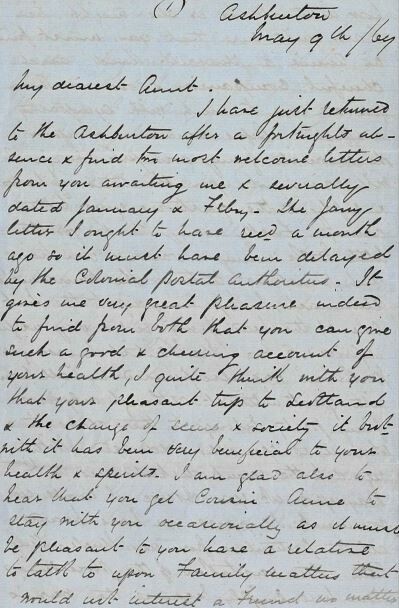 (1)
Ashburton
May 9th /67
My dearest Aunt
I have just returned
to the Ashburton after a fortnights ab-
sence & find two most welcome letters
from you awaiting me & severally
dated January & Feby. The Jany
letter I ought to have recd a month
ago so it must have been delayed
by the Colonial Postal authorities. It
gives me very great pleasure indeed
to find from both that you can give
such a good & cheering account of
your health, I quite think with you
that your pleasant trip to Scotland
& the change of scene & society it brot
with it has been very beneficial to your
health & spirits. I am glad also to
hear that you get Cousin Anne to
stay with you occasionally as it must
be pleasant to you have a relative
to talk to upon Family matters that
would not interest a Friend no matter